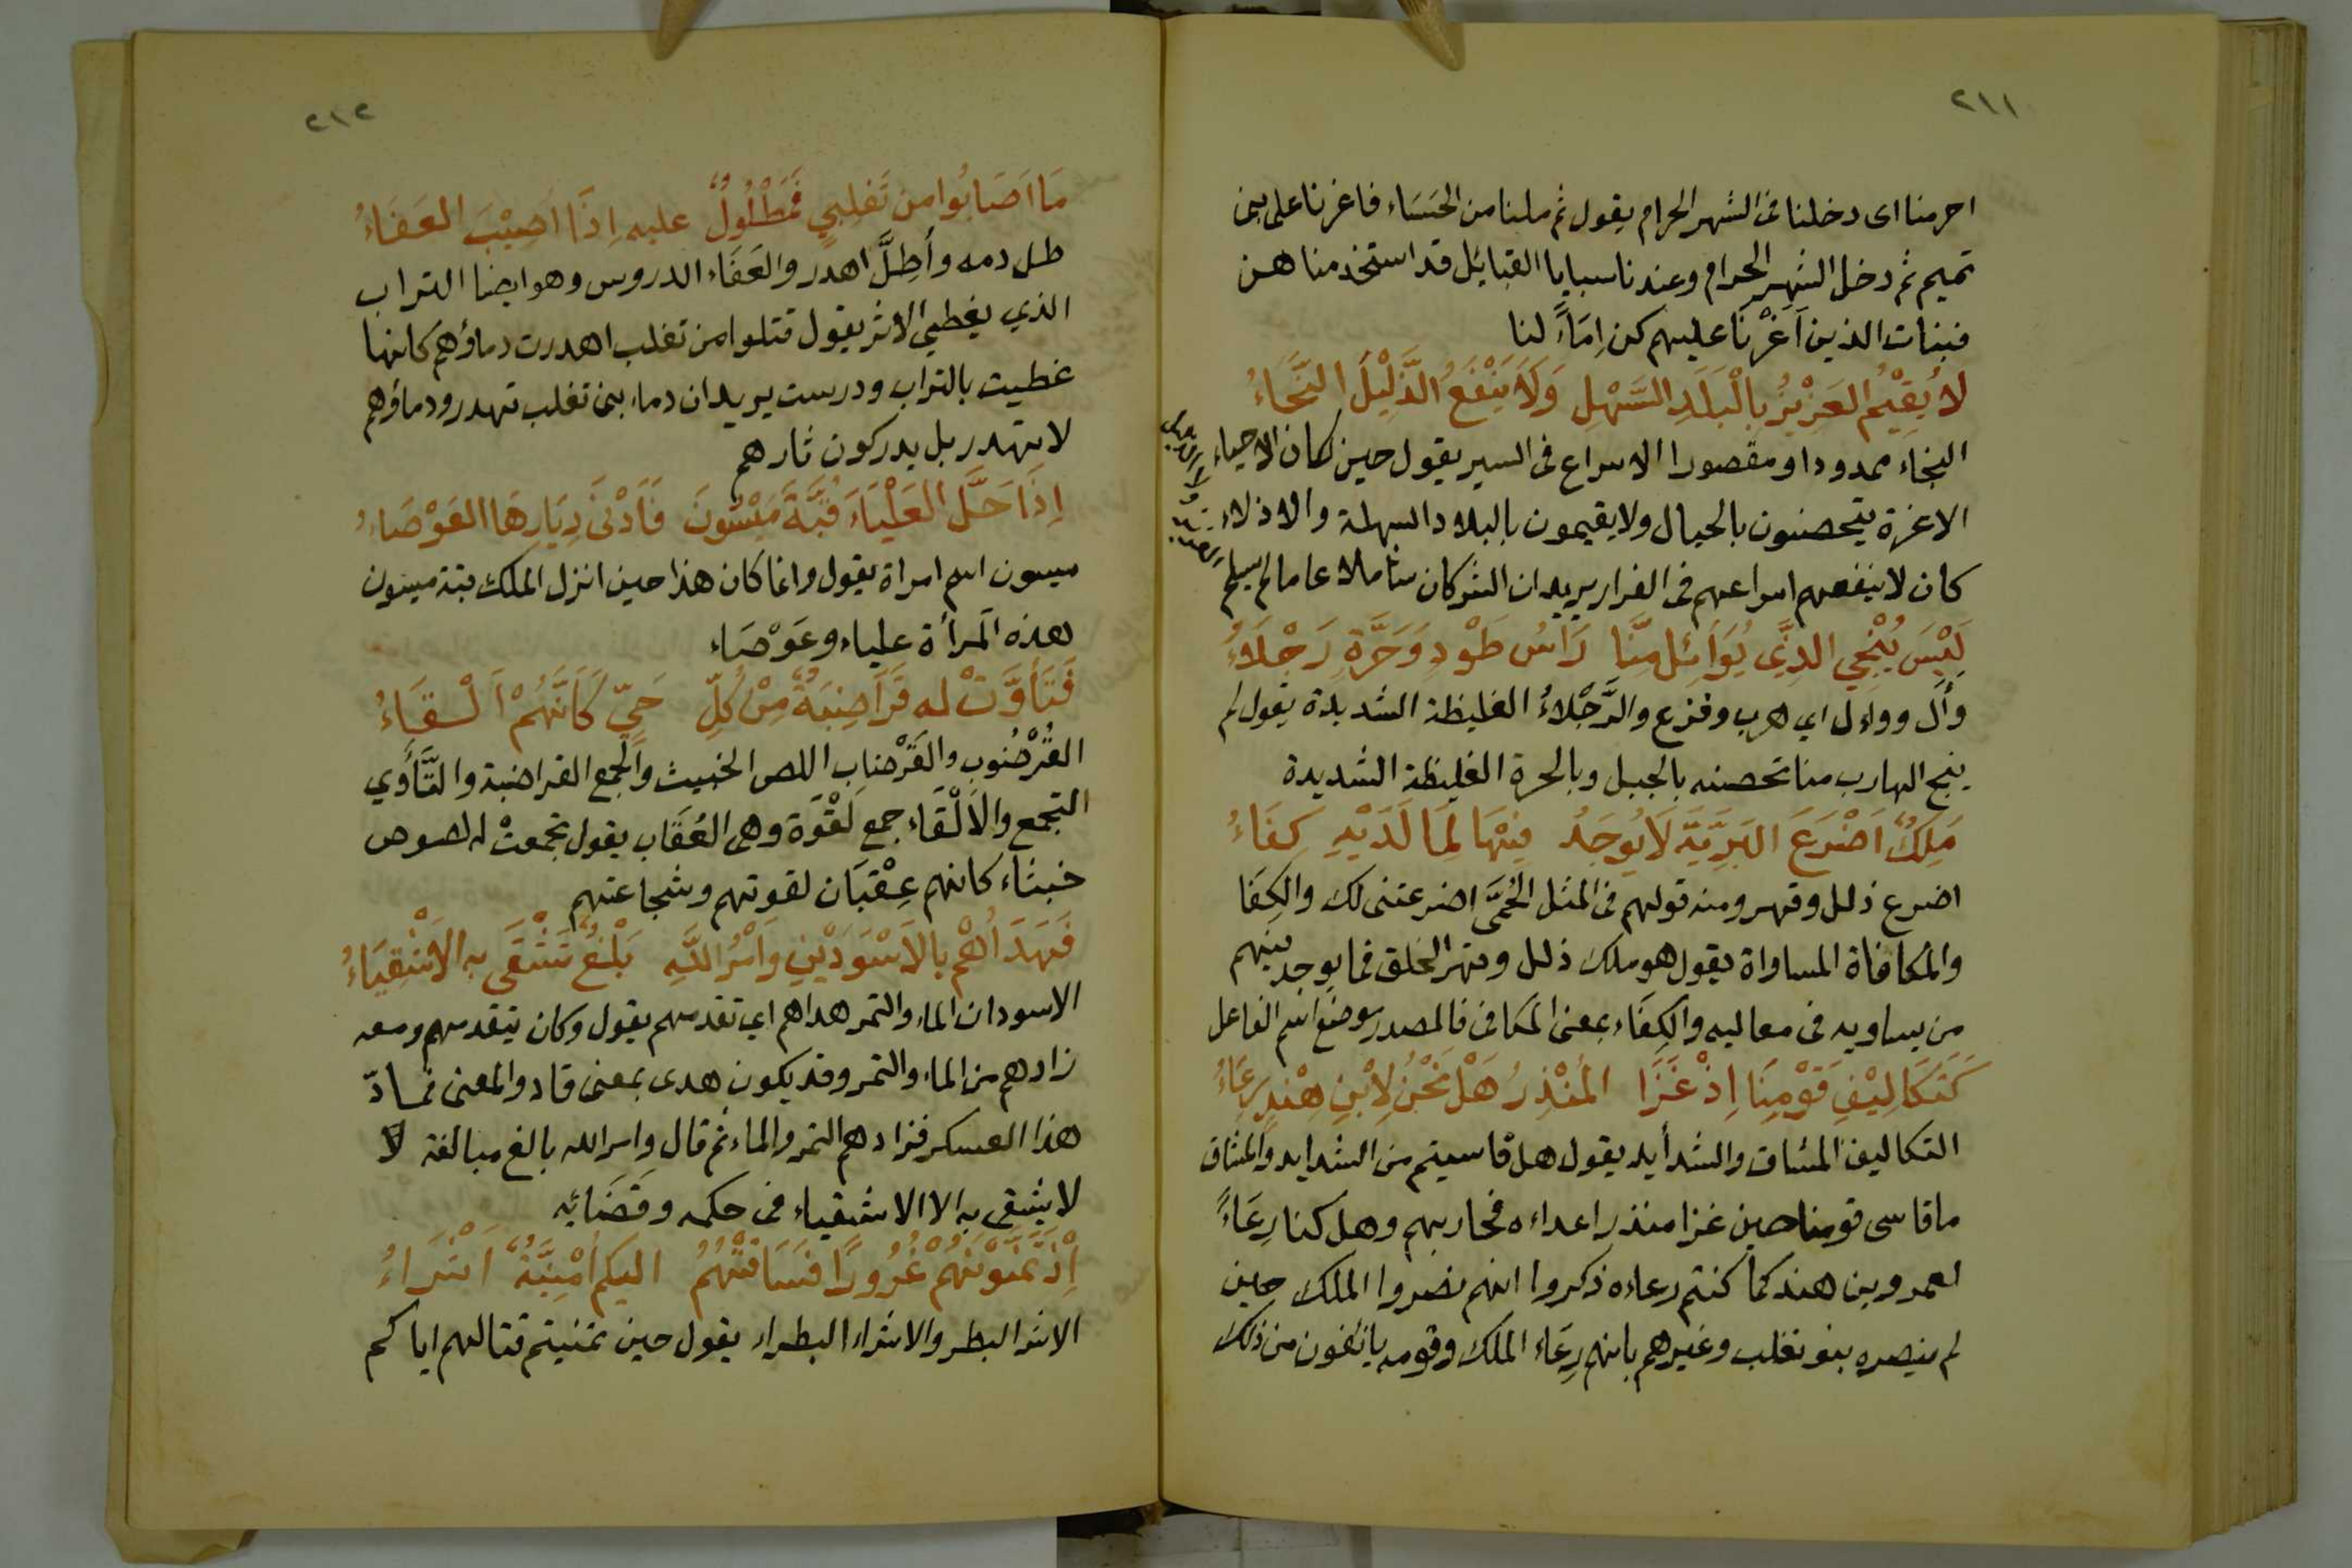 ٢١١
احرمنا اى دخلنا فى الشهر الحرام يقول ثم ملنا من الحَسَاء فاغرنا على بنى
تميم ثم دخل الشهر الحرام وعندنا سبايا القبايل قد استخدمناهن
فبنات الذين اَغَرْنَا عليهم كن اِمَاءً لنا
لَا يُقِيْمُ العَزِيْزُ بِالْبَلَدِ السَّهْلِ وَلَا يَنْفَعُ الذَّلِيْلَ النَّجَاءُ
النجاء ممدودا ومقصورا الاسراع فى السير يقول حين كان الاحياء
الاعزة يتحصنون بالجبال ولا يقيمون بالبلاد السهلة والاذلاء
كان لا ينفعهم اسراعهم فى الفرار يريد ان الشر كان شاملا عاما لم يسلم
لَيْسَ يُنْجِي الذِّي يُوَائِل مِنَّا رَاسُ طَوْدٍ وَحَرَّةٌ رَجْلَاءُ
وأل وواءل اي هرب وفزع والرَّجْلاءُ الغليظة الشديدة يقول لم
ينج الهارب منا تحصنه بالجبل وبالحرة الغليظة الشديدة
مَلِكٌ اَضْرَعَ البَرِيَّةَ لَا يُوجَدُ فِيْهَا لِمَا لَدَيْهِ كِفَاءُ
اضرع ذلل وقهر ومنه قولهم فى المثل الحُمَّى اضرعتنى لك والكِفَا
والمكافاة المساواة يقول هو ملك ذلل وقهر الخلق فما يوجد فيهم
من يساويه فى معاليه والكِفَاء بمعنى المكافى فالمصدر موضع اسم الفاعل
كَتَكَالِيْفِ قَوْمِنَا اِذْ غَزَا المُنْذِرُ هَلْ نَحْنُ لِاْبنِ هِنْدٍ رِعَاءُ
التكاليف المشاق والشدأيد يقول هل قاسيتم من الشدايد والمشاق
ما قاسى قومنا حين غزا منذر اعداءه فحاربهم وهل كنا رِعَاءً
لعمرو بن هند كما كنتم رعاءه ذكروا انهم نصروا الملك حين
لم ينصره بنو تغلب وغيرهم بانهم رِعَاء الملك وقومه يانفون من ذلك
٢١٢
مَا اَصَابُوا من تَغلِبيٍ فَمَطْلُولٌ عليه اِذَا اُصِيْبَ العَفَاءُ
طل دمه وأُطِلَّ اهدر والعَفَاء الدروس وهو ايضا التراب
الذي يغطي الاثر يقول قتلوا من تغلب اهدرت دماؤهم كانها
غطيت بالتراب ودرست يريد ان دماء بنى تغلب تهدر ودماؤهم
لا تهدر بل يدركون ثارهم
اِذَا حَلَّ العَلْيَاءَ قُبَّةَ مَيْسُونَ فَاَدْنَى دِيَارِهَا العَوْصَاءُ
ميسون اسم امراة يقول وانما كان هذا حين انزل الملك قبة ميسون
هذه المرأة علياء وعَوْصَاء
فَتَأَوَّتْ له قَرَاضِبَةٌ مِنْ كُلِّ حَيٍّ كَاَنَّهُمْ اَلْقَاءُ
القُرْضُوب والقَرْضاب اللص الخبيث والجمع القراضبة والتَّأَوي
التجمع والاَلْقَاء جمع لَقْوَة وهى العُقَاب يقول تجمعتْ له لصوص
خبثاء كانهم عِقْبَان لقوتهم وشجاعتهم
فَهَدَاهُم بِالاَسْوَدَيْنِ وَاَمْرُ اللَّهِ بَلْغٌ تَشْقَى به الاَشْقِيَاءُ
الاسودان الماء والتمر هداهم اي تقدمهم يقول وكان يتقدمهم ومعه
زادهم من الماء والتمر وقد يكون هدى بمعنى قاد والمعنى
هذا العسكر فزادهم التمر والماء ثم قال وامر الله بالغ مبالغة لا
لا يشقى به الا الاشقياء فى حكمه وقَضَائِه
اِذْ تَمَنَّوْنَهُمْ غُرُورًا فَسَاقَتْهُمُ اليكم اُمْنِيَّةٌ اَشْرَاءُ
الاشر البطر والاشراء البطراء يقول حين تمنيتم قتالهم اياكم